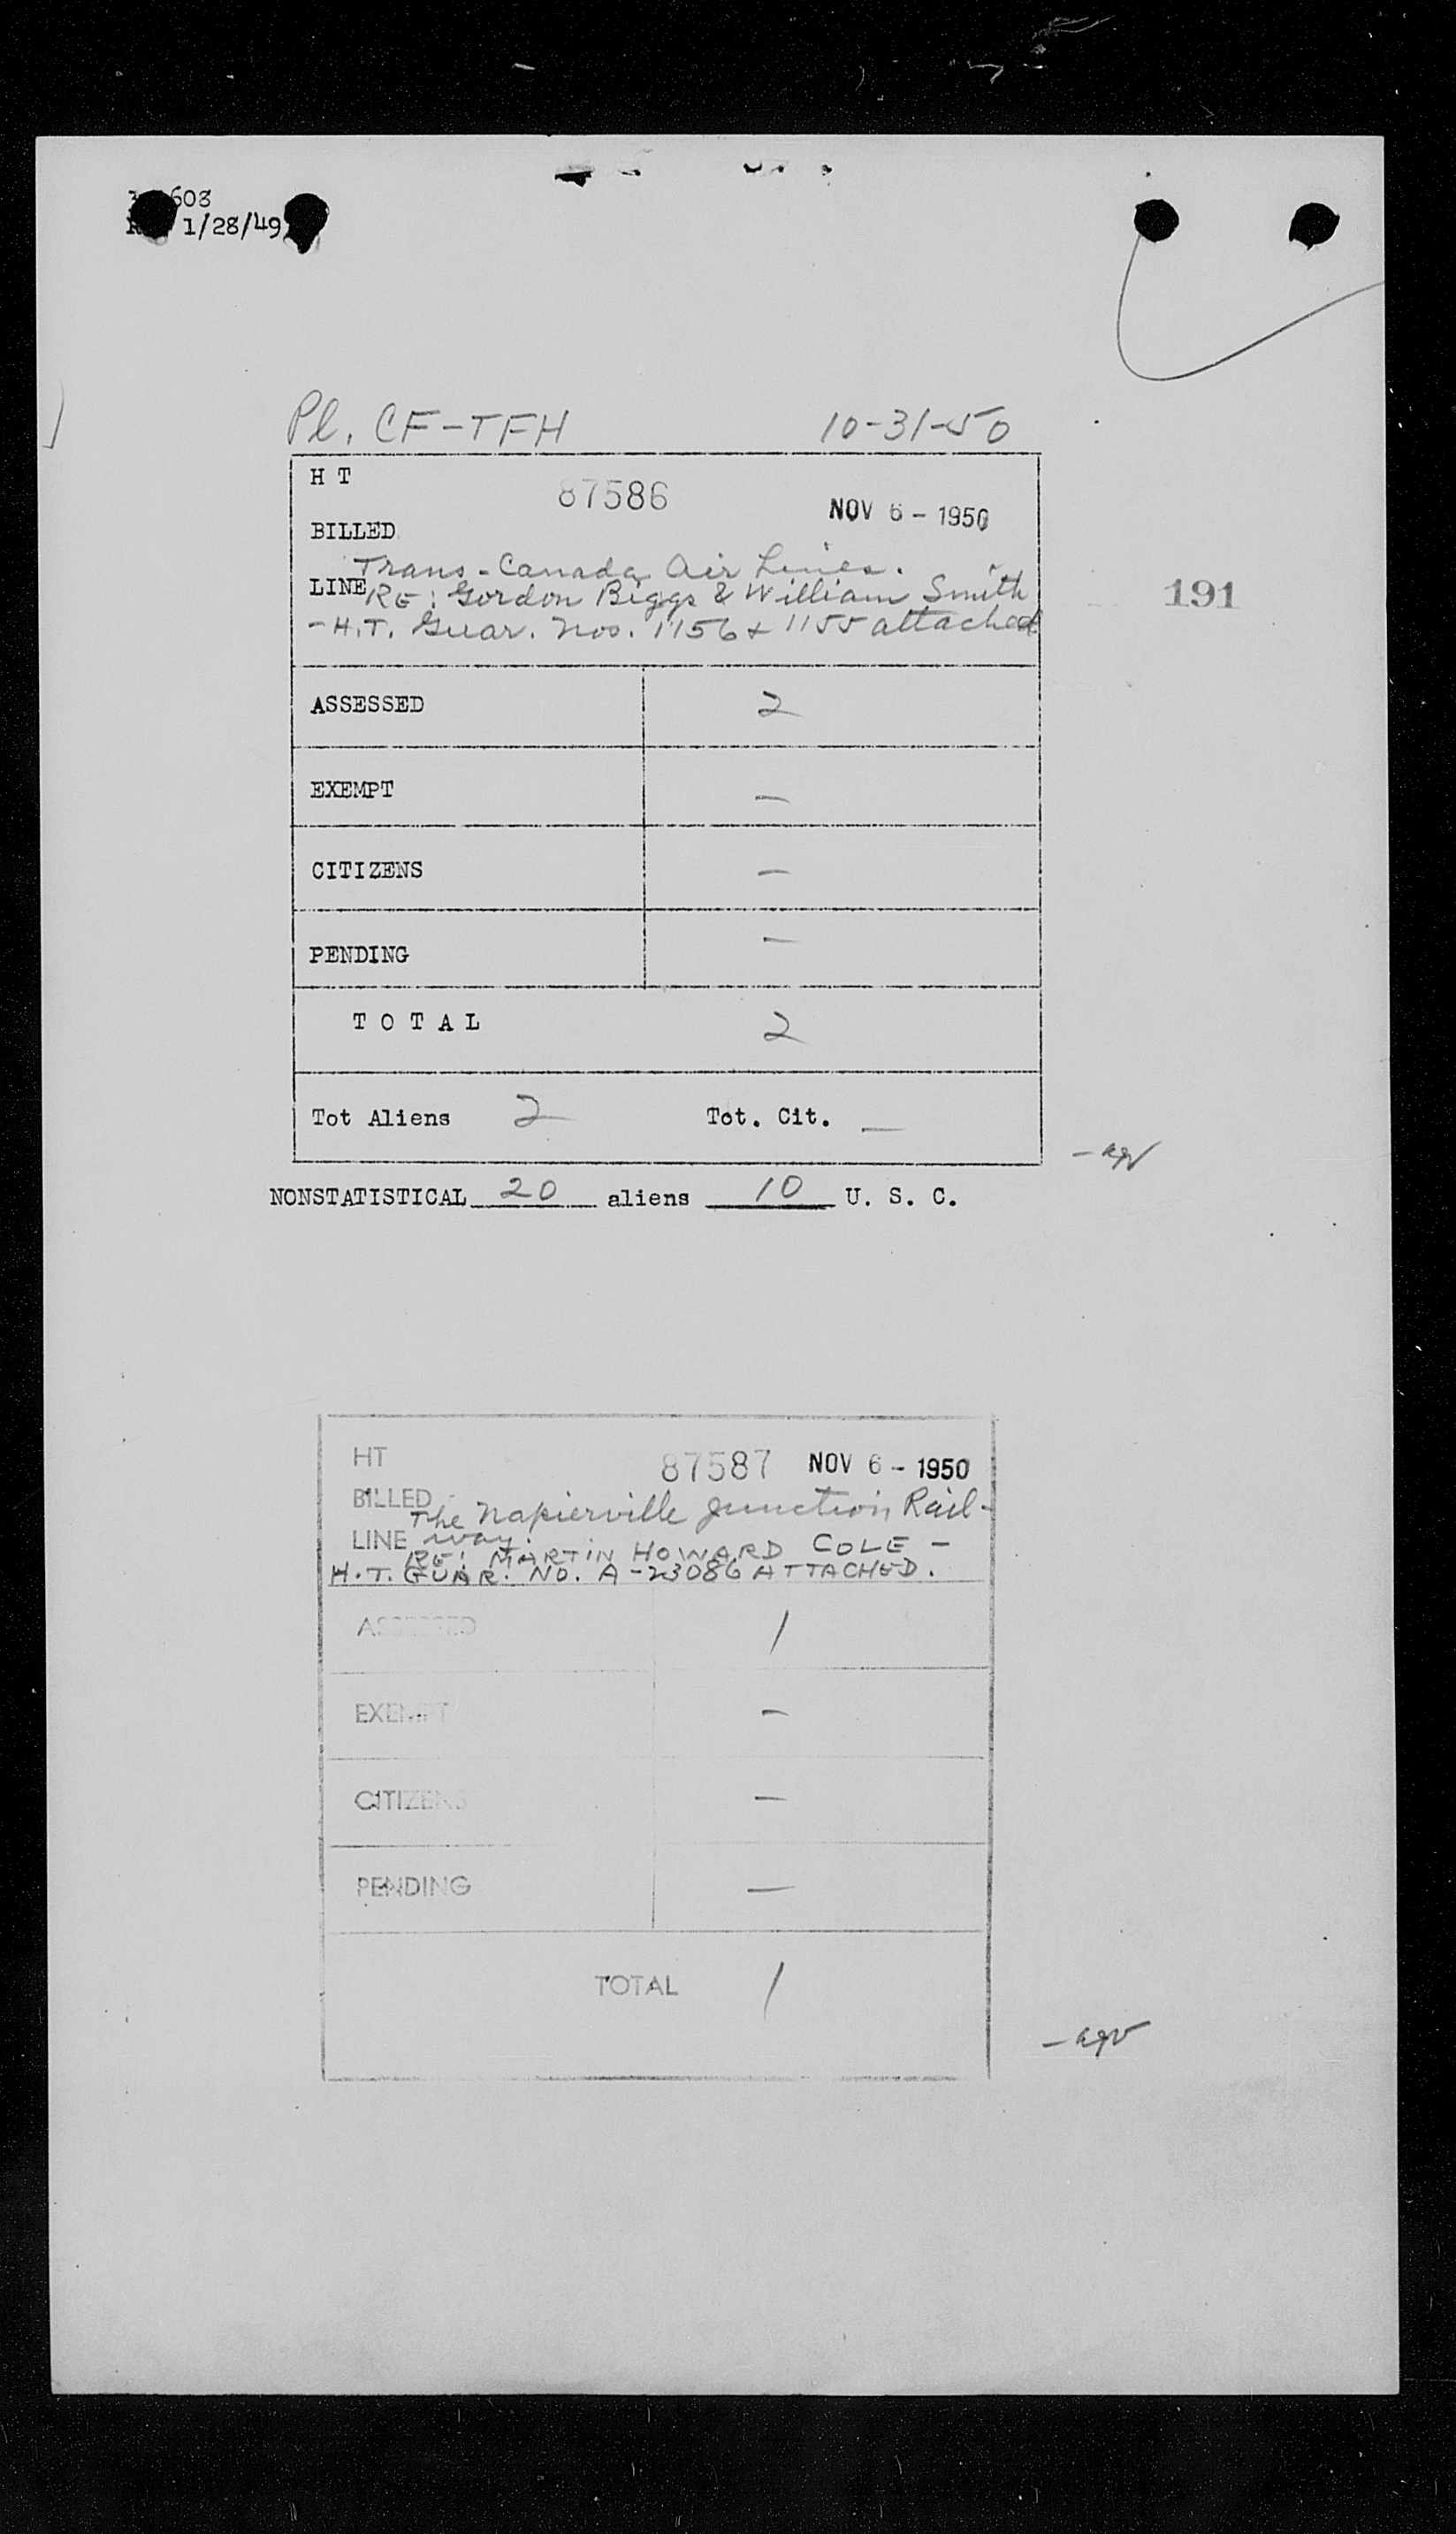 608
1/28/49
Pl. CF-TFH 10-31-50
H T
87586 NOV 6 - 1950
BILLED
Trans-Canada Air Lines.
LINE RE: Gordon Biggs & William Smith
- H.T. Guar. Nos. 1156 & 1155 attached
191
ASSESSED 2
EXEMPT —
CITIZENS —
PENDING —
T O T A L 2
Tot Aliens 2 Tot. Cit. —
NONSTATISTICAL 20 aliens 10 U. S. C.
HT 87587 NOV 6 - 1950
BILLED
The Napierville Junction Rail-
LINE way.
RE: MARTIN HOWARD COLE -
H.T. GUAR. NO. A-23086 ATTACHED.
ASSESSED 1
EXEMPT —
CITIZENS —
PENDING —
TOTAL 1